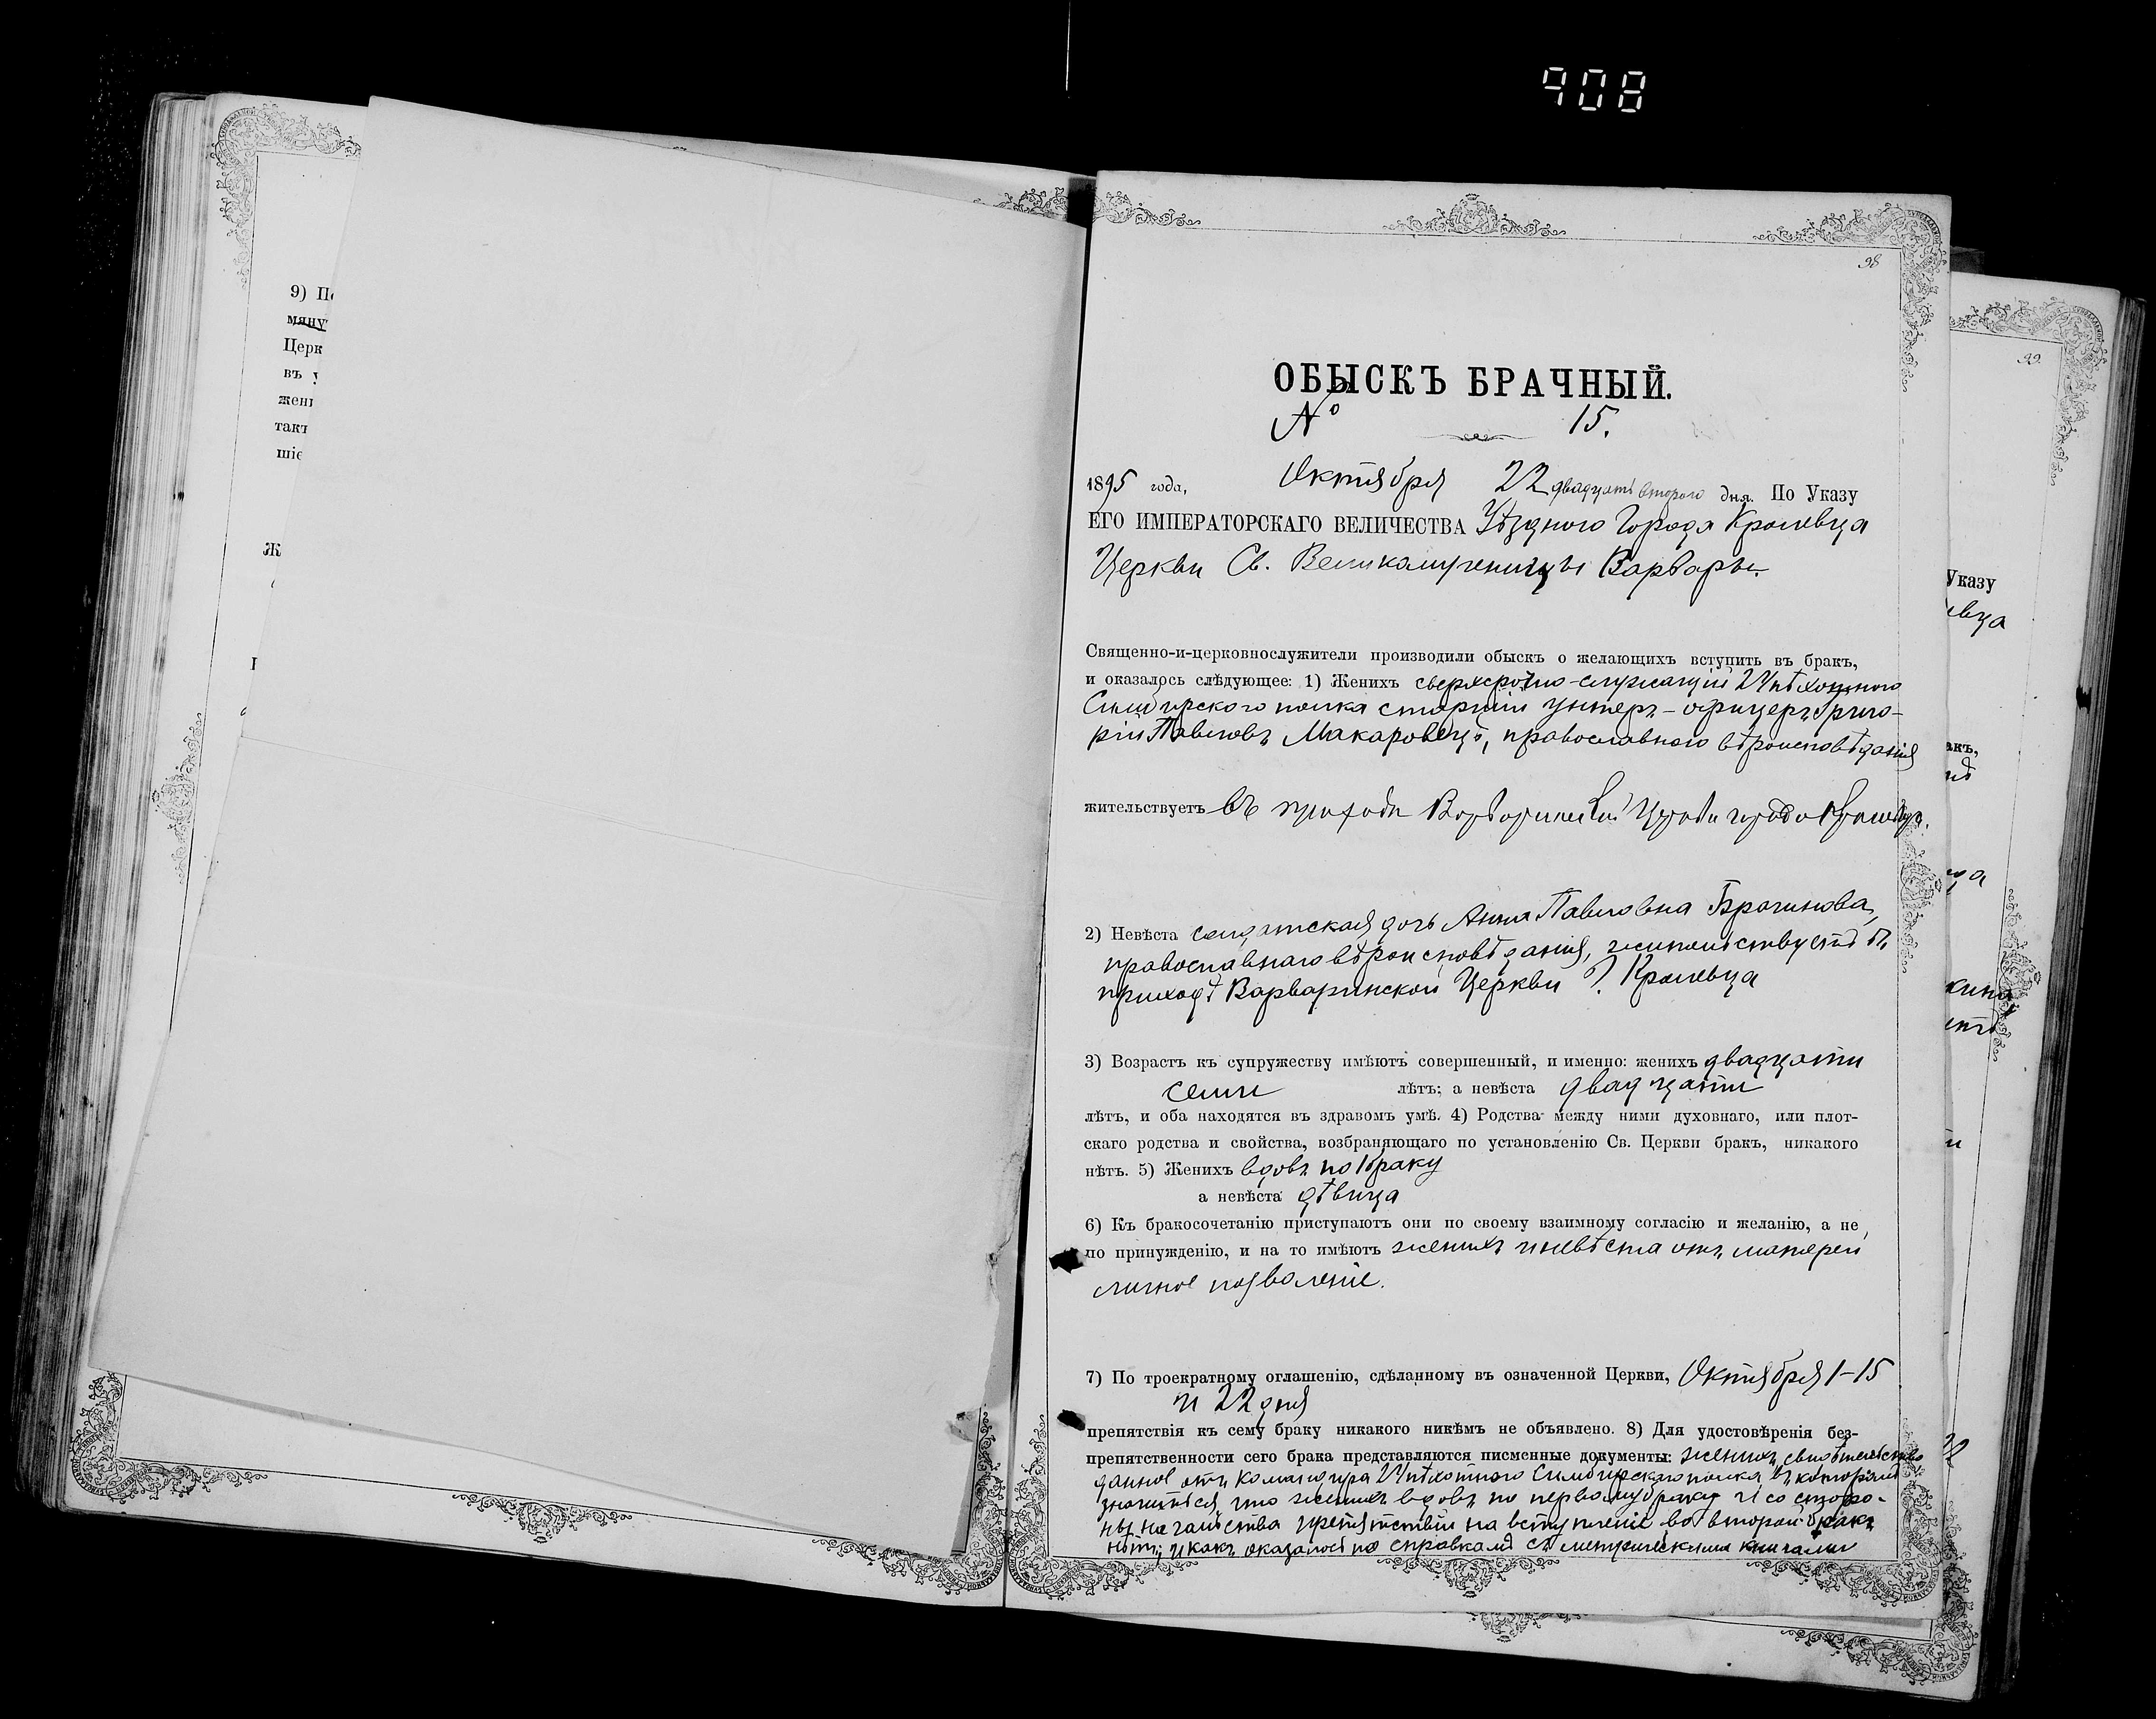 908
9) По
мяну
Церк
въ у
жені
такт
шіе
Ж
98
ОБЫСКЪ БРАЧНЫЙ.
№ 15.
1895 года, Октября 22 двадцать второго дня. По Указу
ЕГО ИМПЕРАТОРСКАГО ВЕЛИЧЕСТВА Уѣзднаго Города Кролевца
Церкви Св. Великомученицы Варвары.
Священно-и-церковнослужители производили обыскъ о желающихъ вступить въ бракъ,
и оказалось слѣдующее: 1) Женихъ сверхсрочно-служащій 24 пѣхотнаго
Симбирскаго полка старшій унтеръ-офицеръ Григо-
рій Павловъ Макаровецъ, православнаго вѣроисповѣданія
жительствуетъ въ приходѣ Варваринской Церкви города Кролевца.
2) Невѣста солдатская дочь Анна Павловна Брагинова,
православнаго вѣроисповѣданія, жительствуетъ въ
приходѣ Варваринской Церкви г. Кролевца
3) Возрастъ къ супружеству имѣютъ совершенный, и именно: женихъ двадцати
семи лѣтъ; а невѣста двадцати
лѣтъ, и оба находятся въ здравомъ умѣ. 4) Родства между ними духовнаго, или плот-
скаго родства и свойства, возбраняющаго по установленію Св. Церкви бракъ, никакого
нѣтъ. 5) Женихъ вдовъ по 1 браку
а невѣста дѣвица
6) Къ бракосочетанію приступаютъ они по своему взаимному согласію и желанію, а не
по принужденію, и на то имѣютъ женихъ и невѣста отъ матерей
личное позволеніе.
7) По троекратному оглашенію, сдѣланному въ означенной Церкви, Октября 1-15
и 22 дня
препятствія къ сему браку никакого никѣмъ не объявлено. 8) Для удостовѣренія без-
препятственности сего брака представляются писменные документы: женихъ свидѣтельство
данное отъ командира 24 пѣхотнаго Симбирскаго полка въ которомъ
значится, что женихъ вдовъ по первому браку и со сторо-
ны начальства препятствій на вступленіе во второй бракъ
нѣтъ; и какъ оказалось по справкамъ съ метрическими книгами
99.
Указу
евца
акъ,